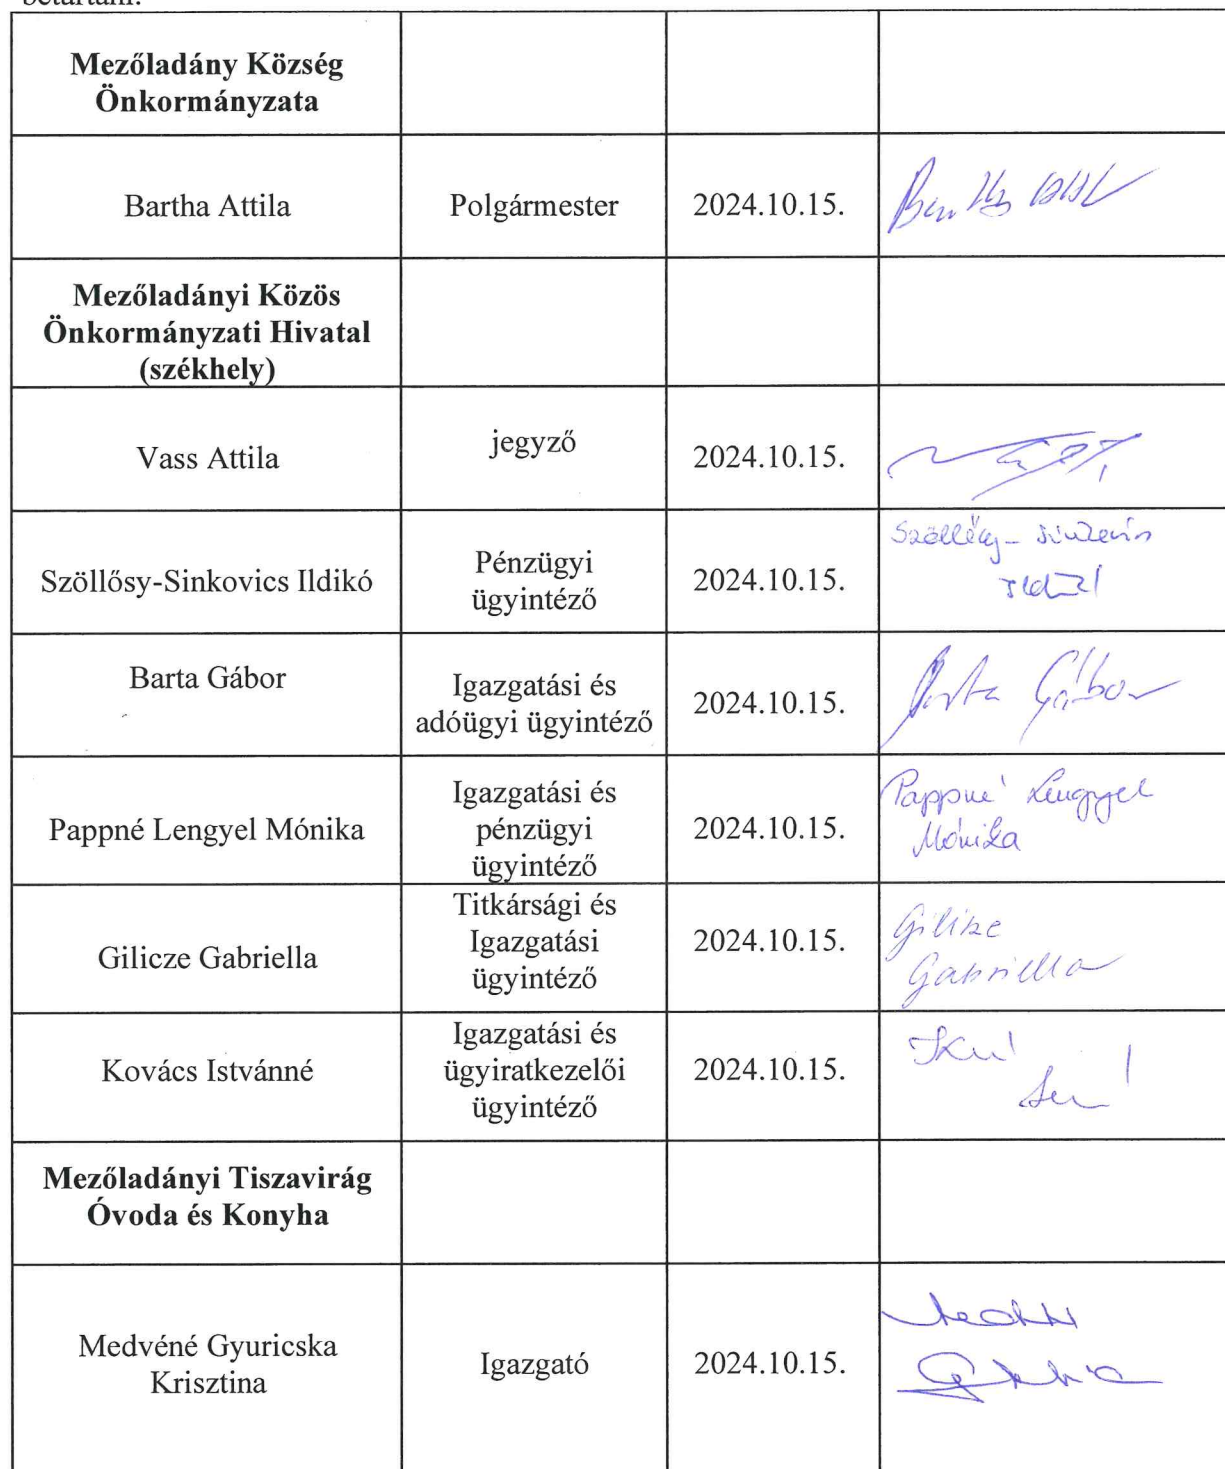 Mezőladány Község
Önkormányzata
Bartha Attila
Polgármester
2024.10.15.
Mezőladányi Közös
Önkormányzati Hivatal
(székhely)
Vass Attila
jegyző
2024.10.15.
Szöllősy-Sinkovics Ildikó
Pénzügyi
ügyintéző
2024.10.15.
Barta Gábor
Igazgatási és
adóügyi ügyintéző
2024.10.15.
Barta Gábor
Pappné Lengyel Mónika
Igazgatási és
pénzügyi
ügyintéző
2024.10.15.
Pappné Lengyel
Mónika
Gilicze Gabriella
Titkársági és
Igazgatási
ügyintéző
2024.10.15.
Gilicze
Gabriella
Kovács Istvánné
Igazgatási és
ügyiratkezelői
ügyintéző
2024.10.15.
Mezőladányi Tiszavirág
Óvoda és Konyha
Medvéné Gyuricska
Krisztina
Igazgató
2024.10.15.